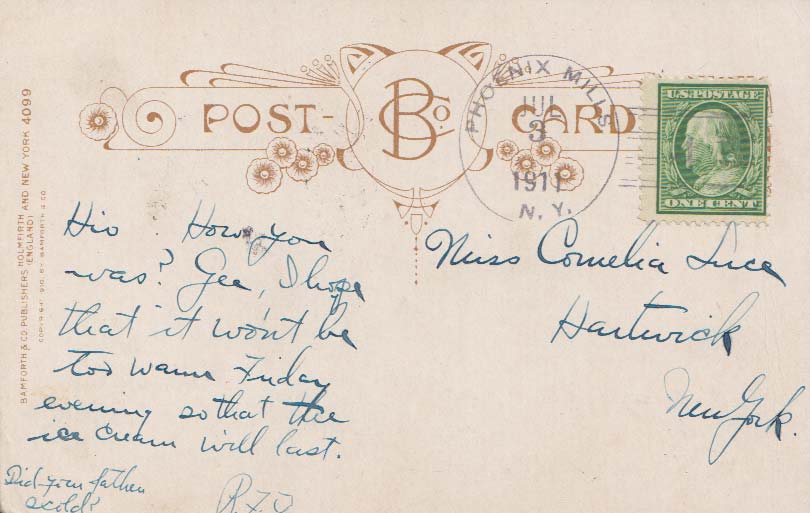 POST-
BCo.
CARD
PHOENIX MILLS
JUL
3
1911
N. Y.
U.S. POSTAGE
ONE CENT
BAMFORTH & CO. PUBLISHERS HOLMFIRTH AND NEW YORK 4099
(ENGLAND)
COPYRIGHT 1910, BY BAMFORTH & CO.
Hio How you
was? Gee, I hope
that it won't be
too warm Friday
evening so that thee
ice cream will last.
Did your father
scold?
Miss Cornelia Luce
Hartwick
New York.